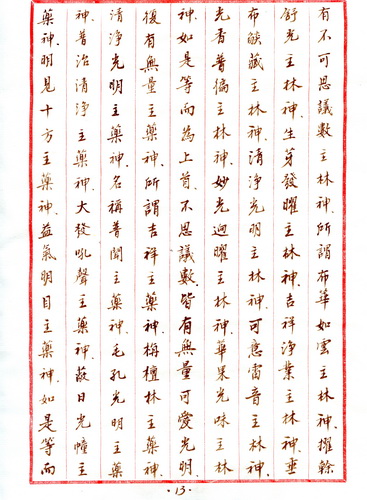 有不可思議數主林神、所謂布華如雲主林神、擢幹
舒光主林神、生芽發曜主林神、吉祥淨葉主林神、垂
布燄藏主林神、清淨光明主林神、可意雷音主林神、
光香普徧主林神、妙光迥曜主林神、華果光味主林
神、如是等而為上首、不思議數、皆有無量可愛光明、
復有無量主藥神、所謂吉祥主藥神、栴檀林主藥神、
清淨光明主藥神、名稱普聞主藥神、毛孔光明主藥
神、普治清淨主藥神、大發吼聲主藥神、蔽日光幢主
藥神、明見十方主藥神、益氣明目主藥神、如是等而
·13·